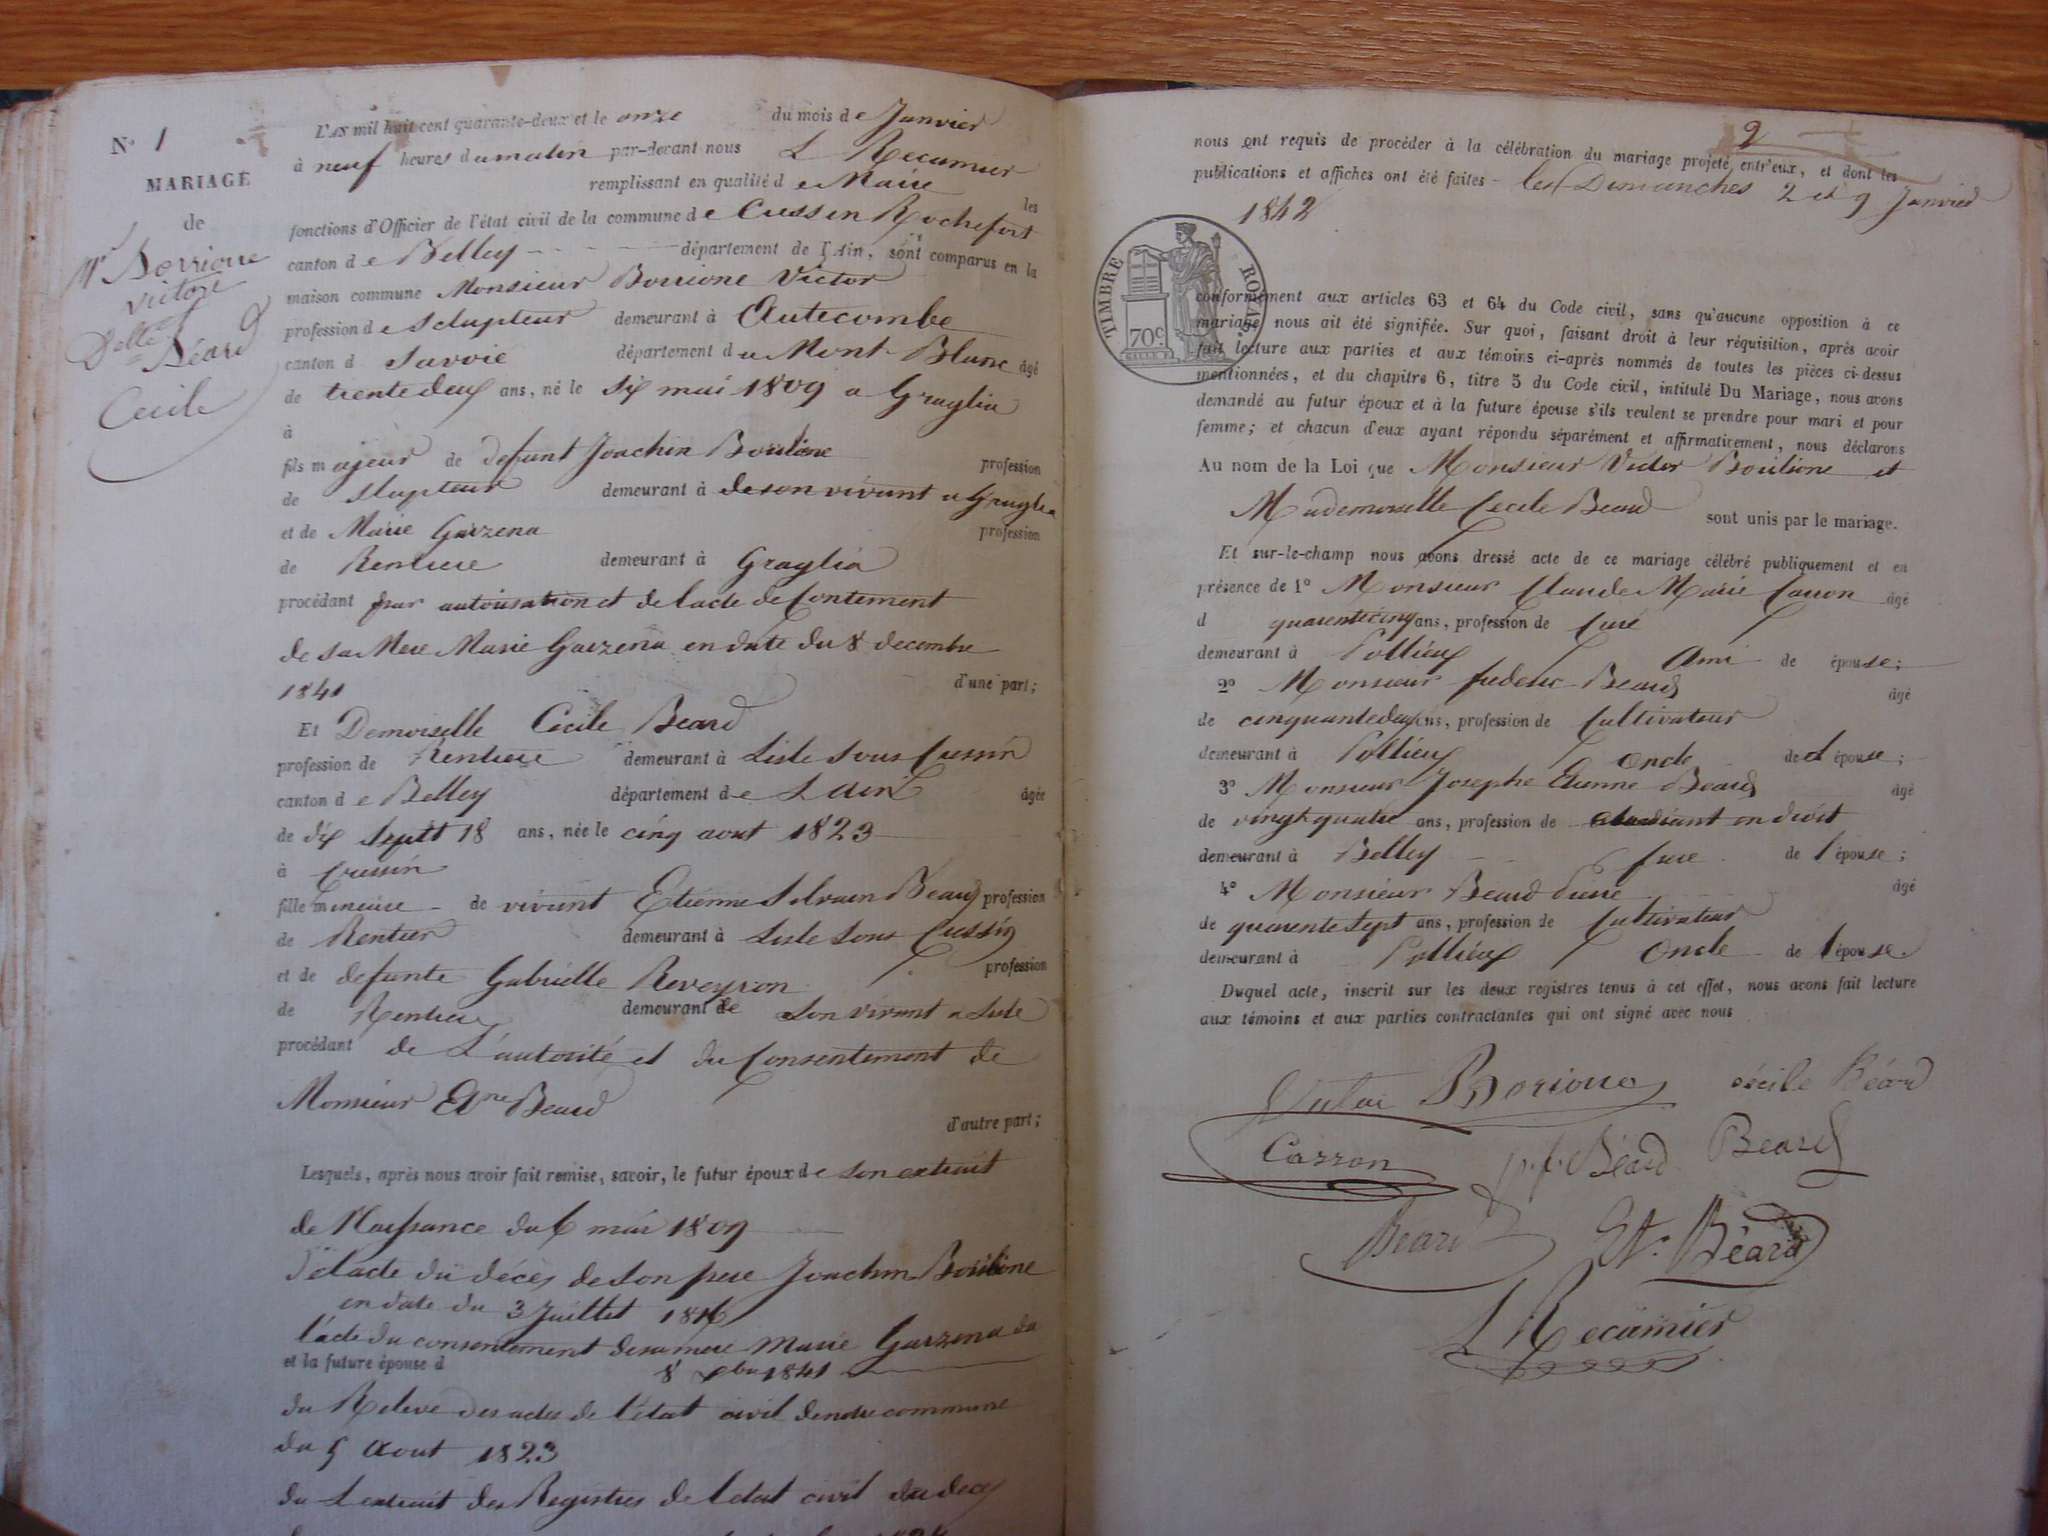 N° 1
MARIAGE
de
Mr Borrione
Victore
Delle Béard
Cecile
L'AN mil huit cent quarante-deux et le onze du mois de Janvier
à neuf heures du matin par-devant nous L Recamier
remplissant en qualité de Maire les
fonctions d'Officier de l'état civil de la commune de Cressin Rochefort
canton de Belley département de l'Ain, sont comparus en la
maison commune Monsieur Borrione Victor
profession de Sclupteur demeurant à Autecombe
canton d Savoie département du Mont-Blanc âgé
de trente deux ans, né le Six mai 1809 a Graglia
à
fils majeur de defunt Joachin Borrione profession
de Slupteur demeurant à de son vivant a Graglia
et de Marie Garzena profession
de Rentiere demeurant à Graglia
procédant par autorisation et de lacte de Contement
de sa Mere Marie Garzena en date du 8 decembre
1841 d'une part;
Et Demoiselle Cecile Beard
profession de Rentiere demeurant à Lisle Sous Cressin
canton de Belley département de L'Ain âgée
de dix Septt 18 ans, née le cinq aout 1823
à Cressin
fille mineure de vivant Etienne Silvain Beard profession
de Rentier demeurant à Lisle Sous Cressin
et de defunte Gabrielle Reveyron profession
de Rentiere demeurant de Son vivant a Lisle
procédant de L'autorité et du Consentement de
Monsieur Etne Beard
d'autre part;
Lesquels, après nous avoir fait remise, savoir, le futur époux de son extrait
de Naissance du 6 mai 1809
de lacte du décès de Son pere Joachin Borrione
en date du 3 Juillet 1816
l'acte du consentement de sa mere Marie Garzena du
et la future épouse d 8 xbre 1841
du Releve des actes de l'état civil de notre commune
du 5 Aout 1823
du L extrait des Registres de letat civil du deces
2
nous ont requis de procéder à la célébration du mariage projeté entr'eux, et dont les
publications et affiches ont été faites les Dimanches 2 et 9 Janvier
1842
TIMBRE ROYAL
70 c.
conformément aux articles 63 et 64 du Code civil, sans qu'aucune opposition à ce
mariage nous ait été signifiée. Sur quoi, faisant droit à leur réquisition, après avoir
fait lecture aux parties et aux témoins ci-après nommés de toutes les pièces ci-dessus
mentionnées, et du chapitre 6, titre 5 du Code civil, intitulé Du Mariage, nous avons
demandé au futur époux et à la future épouse s'ils veulent se prendre pour mari et pour
femme; et chacun d'eux ayant répondu séparément et affirmativement, nous déclarons
Au nom de la Loi que Monsieur Victor Borrione et
Mademoiselle Cecile Beard sont unis par le mariage.
Et sur-le-champ nous avons dressé acte de ce mariage célébré publiquement et en
présence de 1° Monsieur Claude Marie Carron âgé
d quarente cinq ans, profession de Curé
demeurant à Pollieux Ami de épouse;
2° Monsieur frederic Beard âgé
de cinquante deux ans, profession de Cultivateur
demeurant à Pollieux Oncle de l épouse;
3° Monsieur Josephe Etienne Beard âgé
de vingt quatre ans, profession de etudiant en droit
demeurant à Belley frere de l'épouse;
4° Monsieur Beard Pierre âgé
de quarente sept ans, profession de Cultivateur
demeurant à Pollieux Oncle de l'épouse.
Duquel acte, inscrit sur les deux registres tenus à cet effet, nous avons fait lecture
aux témoins et aux parties contractantes qui ont signé avec nous
Victor Borione cécile Béard
Carron Béard Beard
Beard Et. Béard
L Recamier